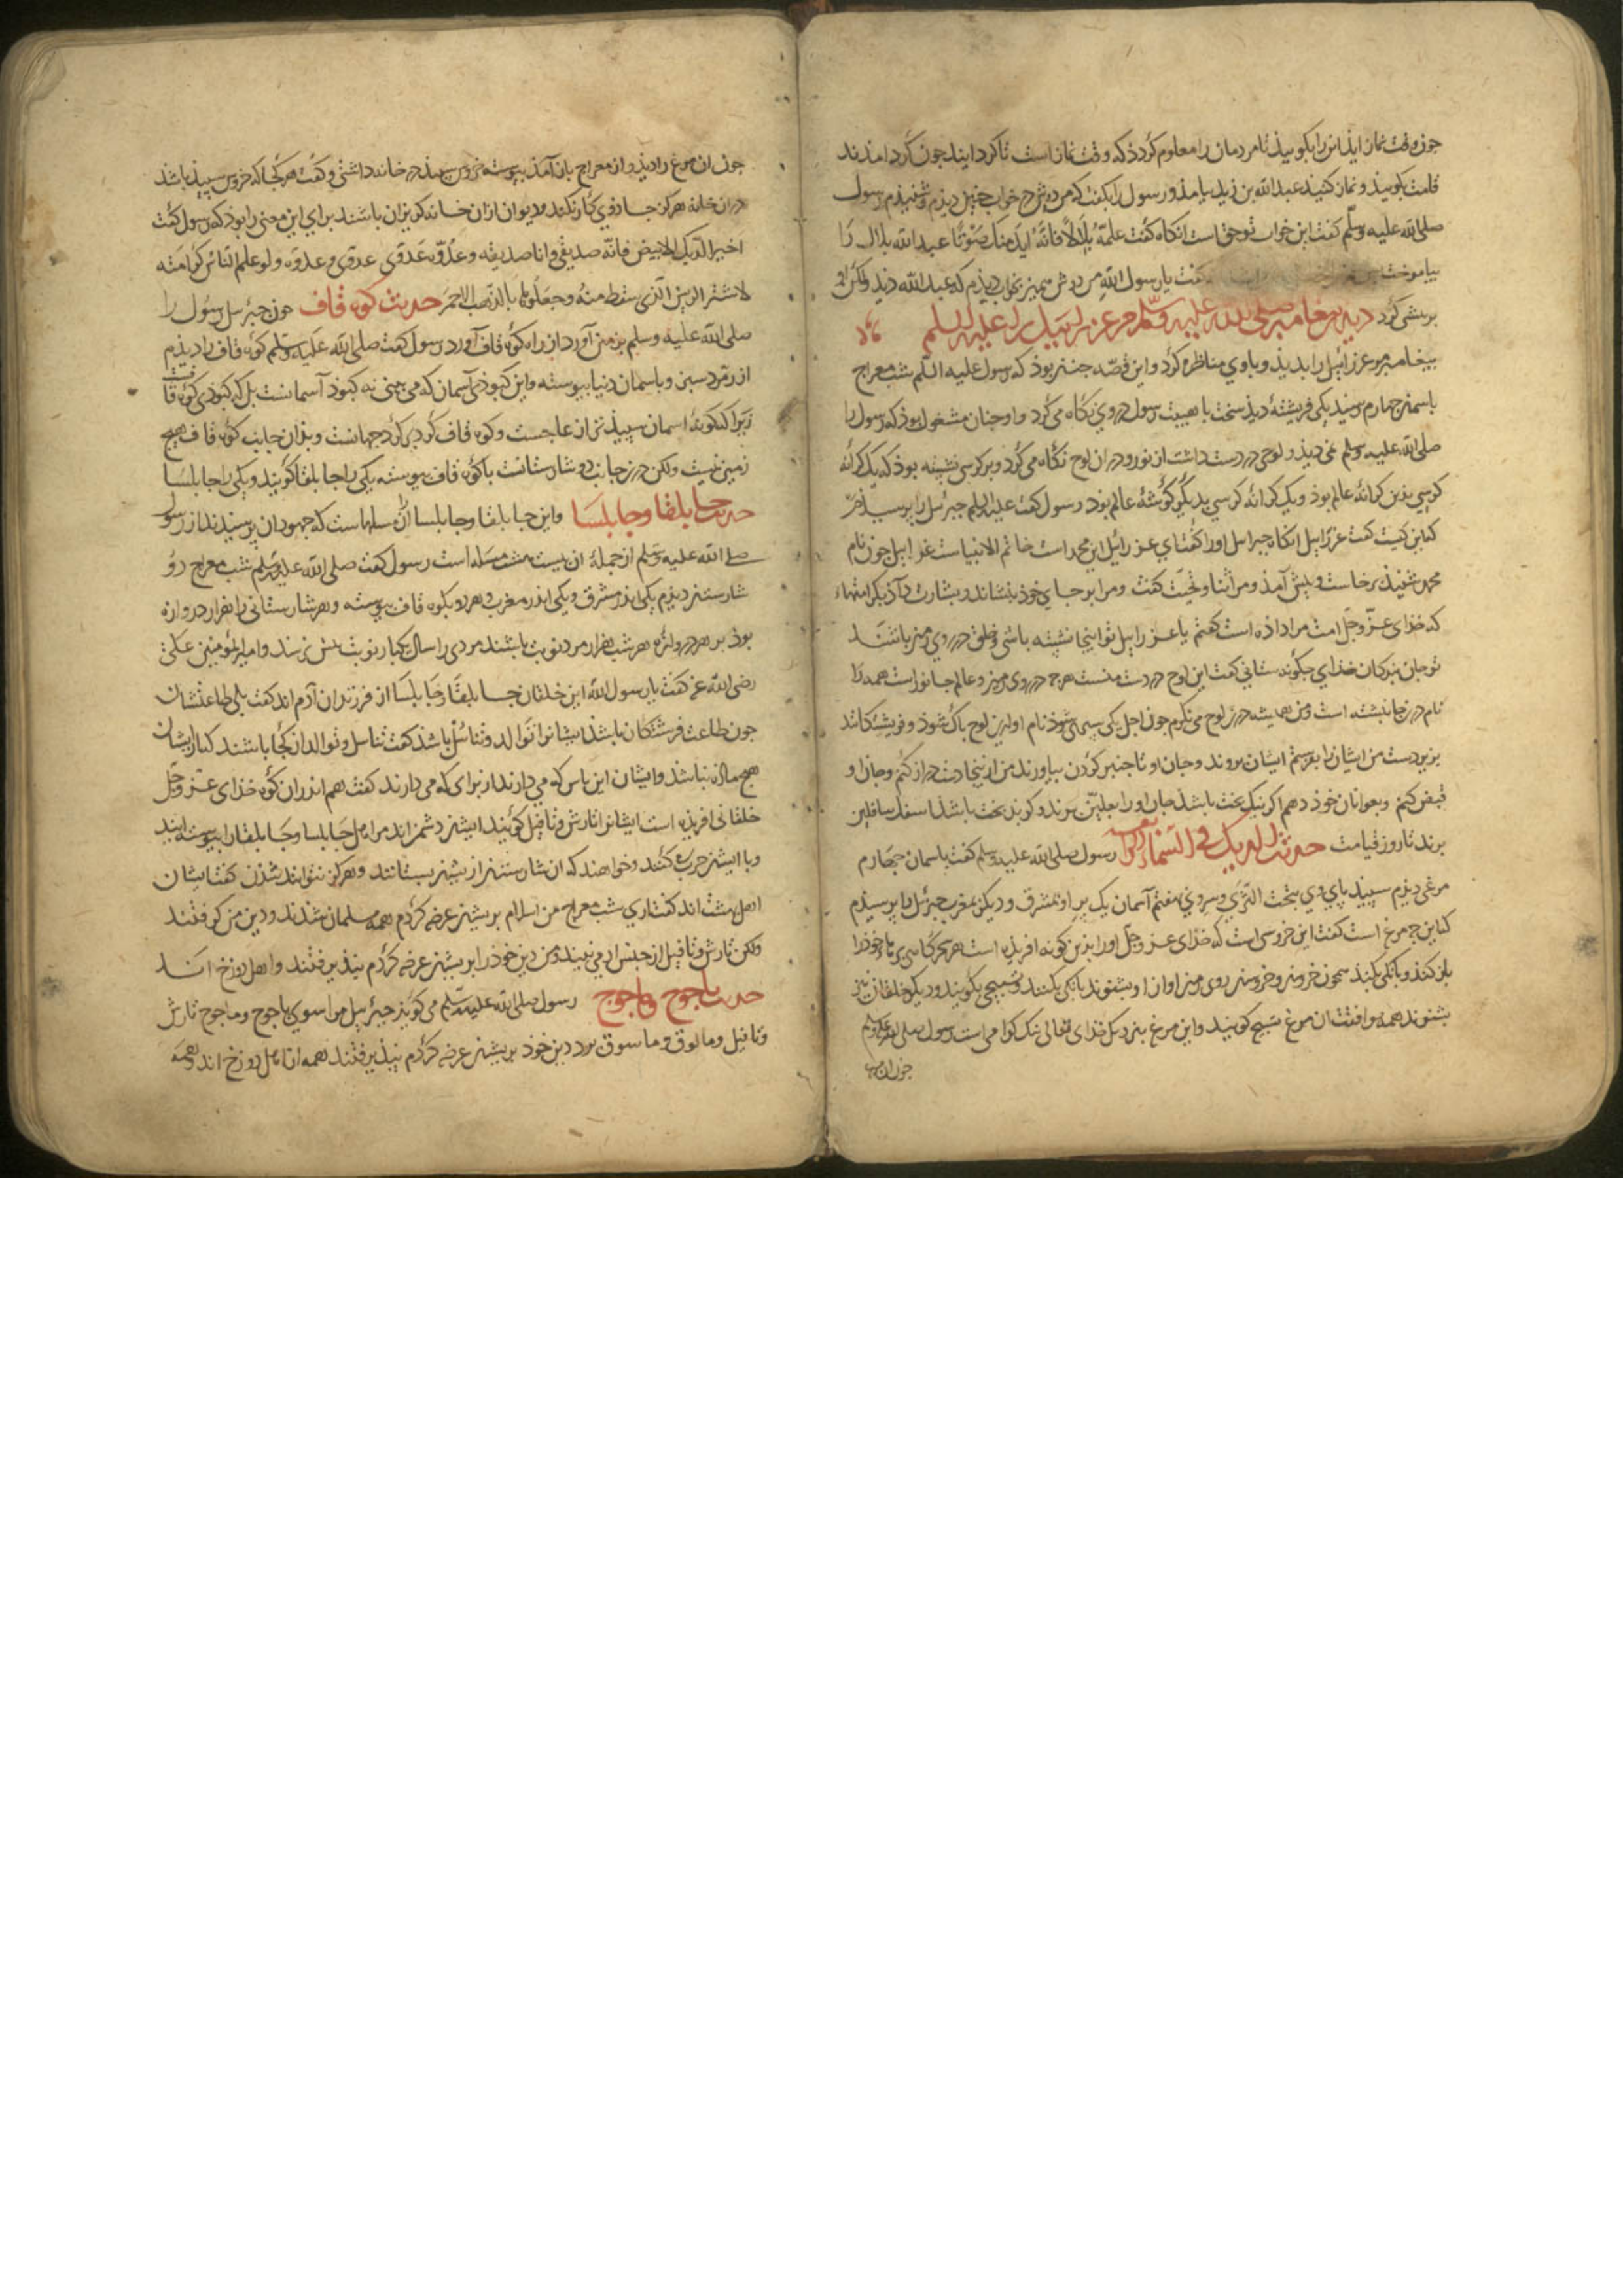 چون وقت نماز آید این را بکویید تا مردمان را معلوم کردد که وقت نماز است تا کرد ایند چون کرد امدند
قامت کویید و نماز کنید عبدالله بن زید بیامد و رسول را بکفت که من دوش در خواب جنین دیدم و شنیدم رسول
صلی الله علیه وسلّم کفت این خواب تو حق است انکاه کفت علمهُ بلالاً فانّهُ اندی منک صَوْتًا عبدالله بلال را
بیاموخت کفت یا رسول الله من دوش همین بخواب دیدم که عبدالله دید ولکن او
بر پیشی کرد دیدن پیغامبر صلی الله علیه وسلّم مر عزراییل را علیه السلم
پیغامبر مر عزرائیل را بدید و با وی مناظره کرد و این قصّه جنین بوذ که رسول علیه السلم شب معراج
باسمان جهارم رسید یکی فریشتهٔ دید سخت با هیبت رسول در وی نکاه می کرد و او جنان مشغول بوذ که رسول را
صلی الله علیه وسلم نمی دید و لوحی در دست داشت از نور و در ان لوح نکاه می کرد و بر کرسی نشسته بود که یک کرانه
کرسی بدین کرانهٔ عالم بوذ و یک کرانه کرسی بدیکر کوشهٔ عالم بود رسول کفت علیه السلم جبرئیل را پرسیدم
که این کیست کفت عزراییل انکاه جبرئیل اورا کفت ای عزرائیل این محمد است خاتم الانبیاست عزراییل جون نام
محمد شنید برخاست و پیش آمد و مرا ثنا و تحیّت کفت و مرا بر جای خوذ بنشاند و بشارت داد دیکر امتهاء
که خذای عزّ وجلّ امت مرا داده است کفتم یا عزراییل تو اینجا نشسته باشی و خلق در روی زمین باشند
تو جان بندکان خذای جکونه ستانی کفت این لوح در دست منست هرچ در روی زمین و عالم جانور است همه را
نام درینجا نبشته است و من همیشه درین لوح می نکرم جون اجل یکی سپری شوذ نام او ازین لوح پاک شوذ و فریشتکانند
بزیر دست من ایشان را بفرستم ایشان بروند و جان او تا جنبر کردن بیاورند من ازینجا دست دراز کنم و جان او
قبض کنم و بعوانان خوذ دهم اکر نیک بخت باشد جان او را بعلیّین برند و کر بد بخت باشد باسفل سافلین
برند تا روز قیامت حدیث الدیک فی السّماء رسول صلی الله علیه وسلم کفت باسمان جهارم
مرغی دیدم سپید پای وی بتحت الثری و سر وی بهفتم آسمان یک پر او بمشرق و دیکر بمغرب جبرئیل را پرسیدم
که این جه مرغ است کفت این خروسی است که خذای عزّ وجلّ اورا بدین کونه افریده است هر سحرکاهی پرها خوذ را
باز کند و بانکی بکند همجون خروس و خروسان روی زمین اواز او بشنوند بانک بکنند و تسبیح بکویند و دیکر خلقان نیز
بشنوند همه موافقت ان مرغ تسبیح کویند و این مرغ بنزدیک خذای تعالی نیک کرامی است رسول صلی الله علیه وسلم
جون ان مرغ
جون ان مرغ را دید و از معراج باز آمد پیوسته خروس سپید در خانه داشتی و کفت هر کجا که خروس سپید باشد
در ان خانه هرکز جاذوی کار نکند و دیوان ازان خانه کریزان باشند برای این معنی را بوذ که رسول کفت
اخیر الدّیک الابیض فانّه صدیقی وانا صدیقه وعدُوّه عَدوّی عدوّی وعدوّه ولو علم النّاس کرامته
لاشتر الریش الّذی سقط منهُ وجعلوها بالذّهب الاحمَر حدیث کوه قاف جون جبرئیل رسُول را
صلی الله علیه وسلم بزمین آورد از راه کوه قاف آورد رسول کفت صلی الله علیه وسلّم کوه قاف را دیدم
از زمرد سبز و باسمان دنیا پیوسته و این کبوذی آسمان که می بینی نه کبود آسمانست بل که کبوذی کوه قاف است
زیرا که کونهٔ اسمان سپیذتر از عاجست و کوه قاف کرد بر کرد جهانست و بذان جانب کوه قاف هیچ
زمین نیست ولکن درین جانب دو شارستانست با کوه قاف پیوسته یکی را جابلقا کویند و یکی را جابلسا
حدیث جابلقا و جابلسَا و این جابلقا و جابلسا ازان مسلهاست که جهودان پرسیدند از رسول
صلی الله علیه وسلم از جملهٔ ان بیست هشت مسَله است رسول کفت صلی الله علیه وسلم شب معراج دوُ
شارستان دیدم یکی اندر مشرق و یکی اندر مغرب و هر دو بکوه قاف پیوسته و هر شارستانی را هزار دروازه
بوذ بر هر دروازه هر شب هزار مرد نوبت باشند مردی را سال یکبار نوبت بیش نرسد و امیر المؤمنین علی
رضی الله عنه کفت یا رسول الله این خلقان جابلقا و جابلسَا از فرزندان آدم اند کفت بلی طاعتشان
جون طاعت فرشتکان باشد ایشانرا توالد و تناسُل باشد کفت تناسل و توالد از کجا باشد کی با ایشان
هیچ ماده نباشد و ایشان این پاس که می دارند از برای که می دارند کفت هم اندر ان کوه خذای عزّ وجَل
خلقانی افریده است ایشانرا تارش و تافیل کویند ایشان دشمن اند مر اهل جابلسا و جابلقا را پیوسته ایند
و با ایشان حرب کنند و خواهند که ان شارستان از ایشان بستانند و هرکز نتوانند شدن کفت ایشان
اهل بهشت اند کفت اری شب معراج من اسلام بر ایشان عرضه کردم همه مسلمان شدند و دین من کرفتند
ولکن تارش و تافیل از جنس آدمی نیند و من دین خوذ را بر ایشان عرضه کردم نپذیرفتند و اهل دوزخ اند
حدیث یاجوج وماجوج رسول صلی الله علیه وسلّم می کوید جبرئیل مرا سوی یاجوج و ماجوج تارش
و تافیل و مالوق و ماسوق برد دین خود بر ایشان عرضه کردم نپذیرفتند همه از اهل دوزخ اند و همه